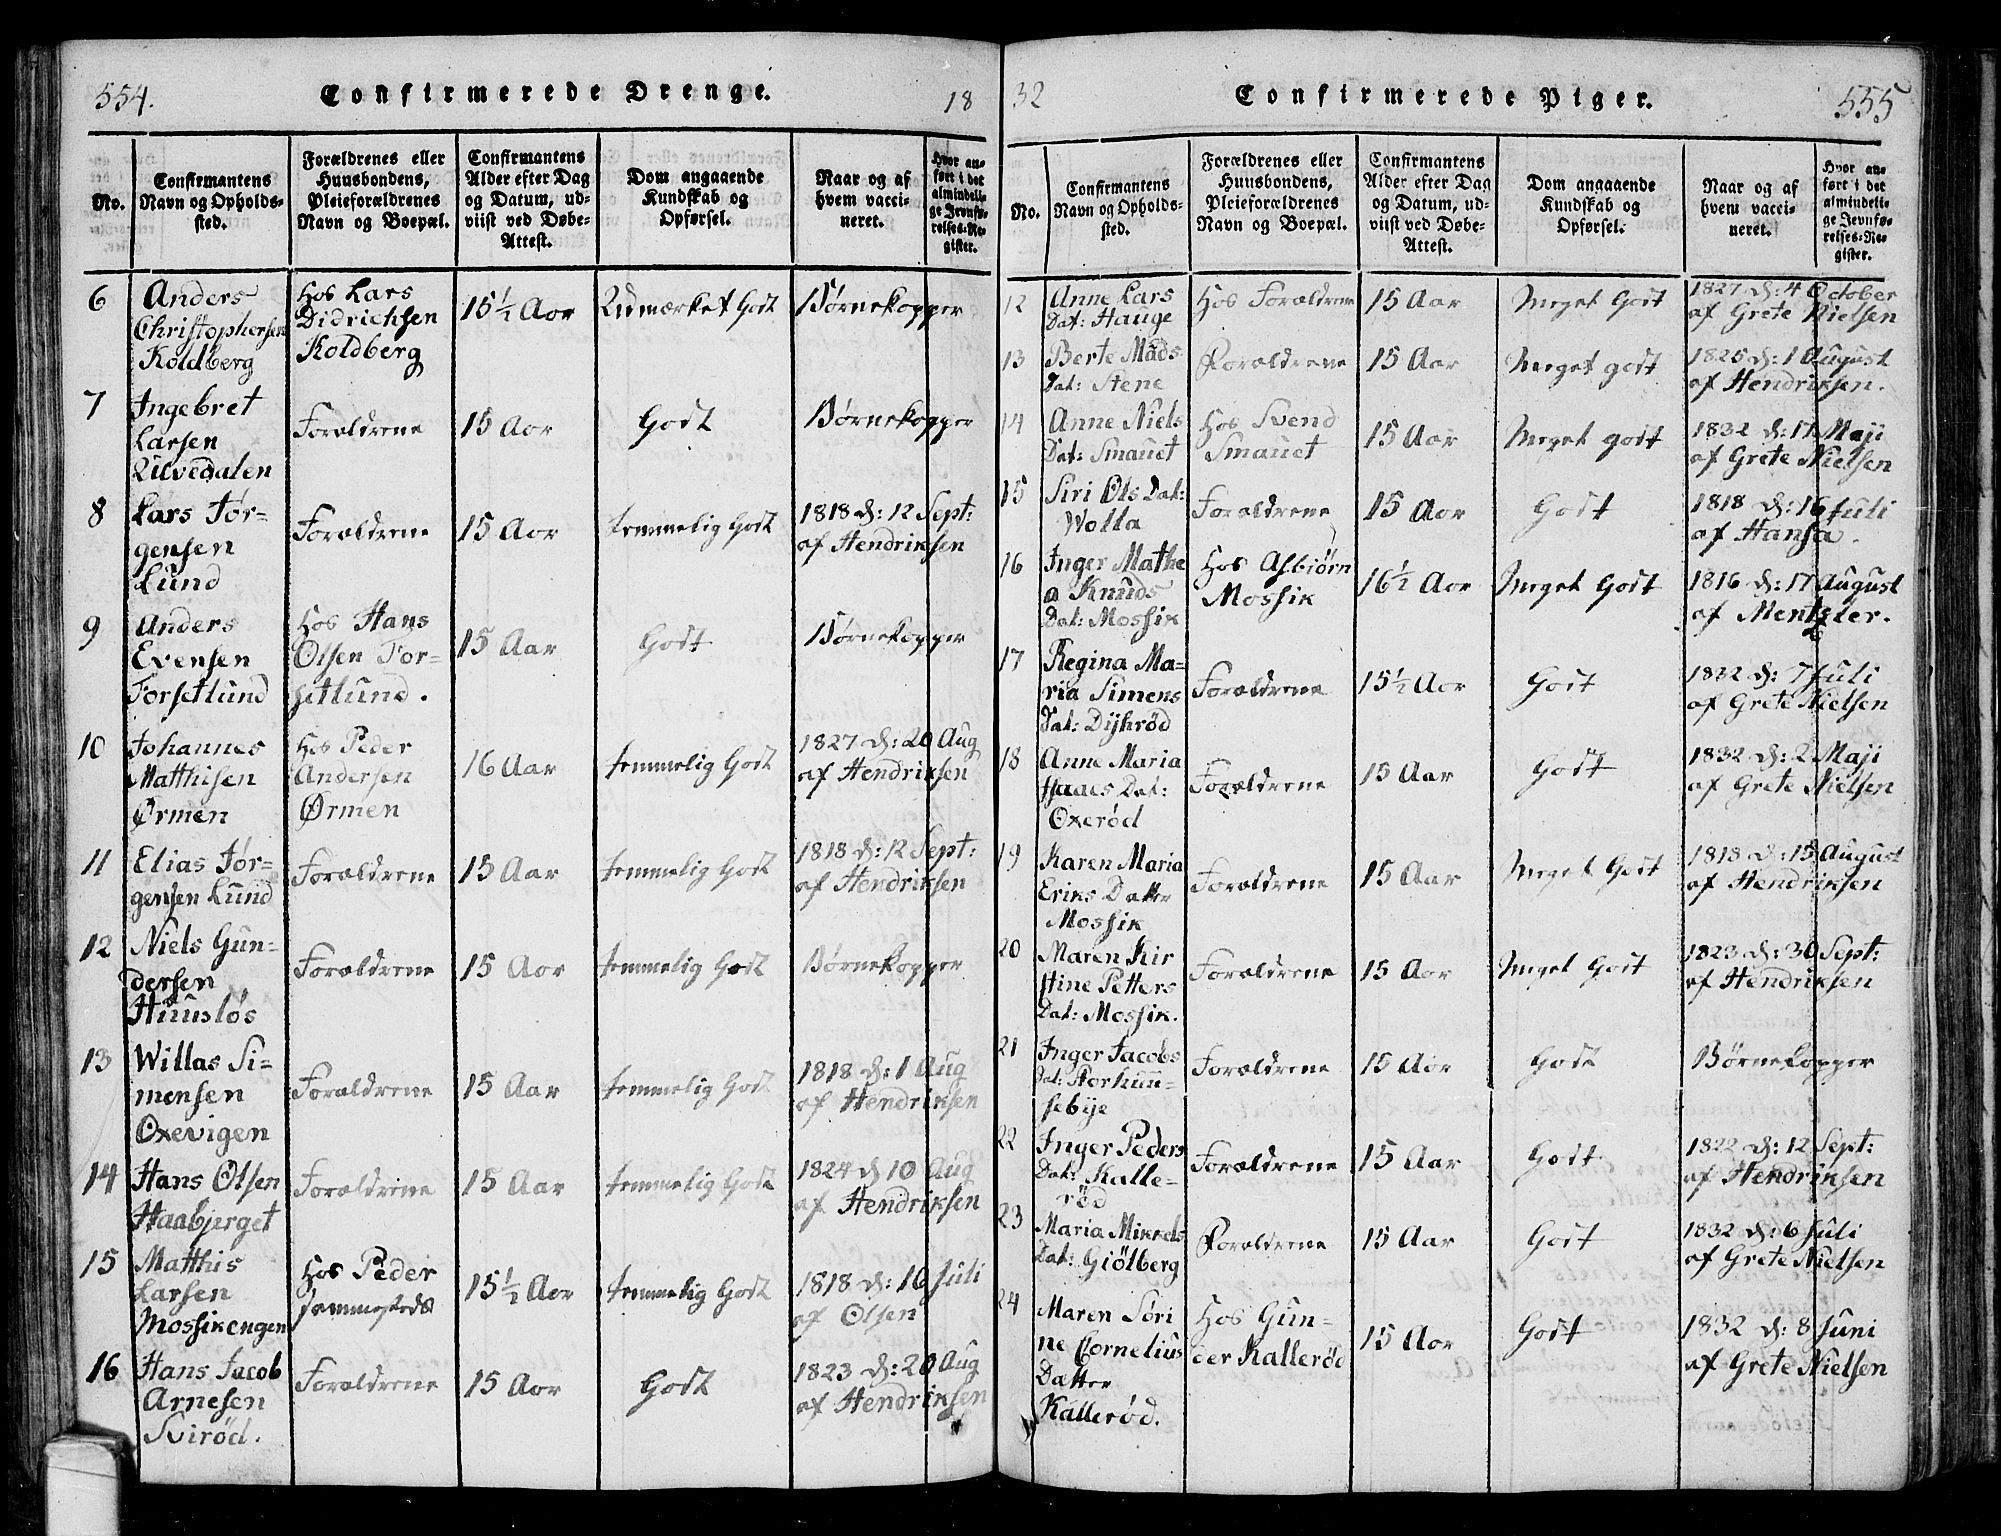 554.
Confirmerede Drenge.
18
No.
Confirmantens
Navn og Opholds-
sted.
Forældrenes eller
Huusbondens,
Pleieforældrenes
Navn og Boepæl.
Confirmantens
Alder efter Dag
og Datum, ud-
viist ved Døbe-
Attest.
Dom angaaende
Kundskab og
Opførsel.
Naar og af
hvem vacci-
neret.
Hvor an-
ført i det
almindeli-
ge Jevnfø-
relses-Re-
gister.
6
Anders
Christophersen
Koldberg
Hos Lars
Didrichsen
Koldberg
15½ Aar
Udmærket Godt
Børnekopper
7
Ingebret
Larsen
Ulvedalen
Forældrene
15 Aar
Godt
Børnekopper
8
Lars Jør-
gensen
Lund
Forældrene
15 Aar
temmelig Godt
1818 d: 12 Sept:
af Hendriksen
9
Anders
Evensen
Forsetlund
Hos Hans
Olsen For-
setlund.
15 Aar
Godt
Børnekopper
10
Johannes
Matthisen
Ørmen
Hos Peder
Andersen
Ørmen
16 Aar
temmelig Godt
1827 d: 20 Aug
af Hendriksen
11
Elias Jør-
gensen Lund
Forældrene
15 Aar
temmelig Godt
1818 d: 12 Sept:
af Hendriksen
12
Niels Gun-
dersen
Huusløs
Forældrene
15 Aar
temmelig Godt
Børnekopper
13
Willas Si-
mensen
Oxevigen
Forældrene
15 Aar
temmelig Godt
1818 d: 1 Aug
af Hendriksen
14
Hans Olsen
Haabjerget
Forældrene
15 Aar
temmelig Godt
1824 d 10 Aug
af Hendriksen
15
Matthis
Larsen
Mossikengen
Hos Peder
sammesteds
15½ Aar
temmelig Godt
1818 d: 16 Juli
af Olsen
16
Hans Jacob
Arnesen
Svirød.
Forældrene
15 Aar
Godt
1823 d: 20 Aug
af Hendriksen
32
Confirmerede Piger.
555
No.
Confirmantens
Navn og Opholds-
sted.
Forældrenes eller
Huusbondens,
Pleieforældrenes
Navn og Boepæl.
Confirmantens
Alder efter Dag
og Datum, ud-
viist ved Døbe-
Attest.
Dom angaaende
Kundskab og
Opførsel.
Naar og af
hvem vacci-
neret.
Hvor an-
ført i det
almindeli-
ge Jevnfø-
relses-Re-
gister.
12
Anne Lars
Dat: Hauge
Hos Forældrene
15 Aar
Meget Godt
1827 d: 4 October
af Grete Nielsen
13
Berte Mads
Dat: Stene
Forældrene
15 Aar
Meget godt
1825 d: 1 August
af Hendriksen.
14
Anne Niels
Dat: Smauet
Hos Svend
Smauet
15 Aar
Meget godt
1832 d: 17 Maji
af Grete Nielsen
15
Siri Ols Dat:
Wolla
Forældrene
15 Aar
Godt
1818 d: 16 Juli
af Hansa.
16
Inger Mathe
a Knuds
Dat: Mossik
Hos Asbiørn
Mossik
16½ Aar
Meget Godt
1816 d: 17 August
af Mentzler.
17
Regina Ma-
ria Simens
Dat: Dijkrød
Forældrene
15½ Aar
Godt
1832 d: 7 Juli
af Grete Nielsen
18
Anne Maria
Isaacs Dat:
Oxerød
Forældrene
15 Aar
Godt
1832 d: 2 Maji
af Grete Nielsen
19
Karen Maria
Eriks Datter
Mossik
Forældrene
15 Aar
Meget Godt
1818 d: 15 August
af Hendriksen
20
Maren Kir
stine Petters
Dat: Mossik.
Forældrene
15 Aar
Meget Godt
1823 d: 30 Sept:
af Hendriksen
21
Inger Jacobs
Dat: Storhuu-
sebye
Forældrene
15 Aar
Godt
Børnekopper
22
Inger Peders
Dat: Kalle-
rød
Forældrene
15 Aar
Godt
1822 d: 12 Sept:
af Hendriksen
23
Maria Mikkels
Dat: Giølberg
Forældrene
15 Aar
Godt
1832 d: 6 Juli
af Grete Nielsen
24
Maren Søri
ne Cornelius
Datter
Kallerød.
Hos Gun-
der Kallerød
15 Aar
Godt
1832 d: 8 Juni
af Grete Nielsen